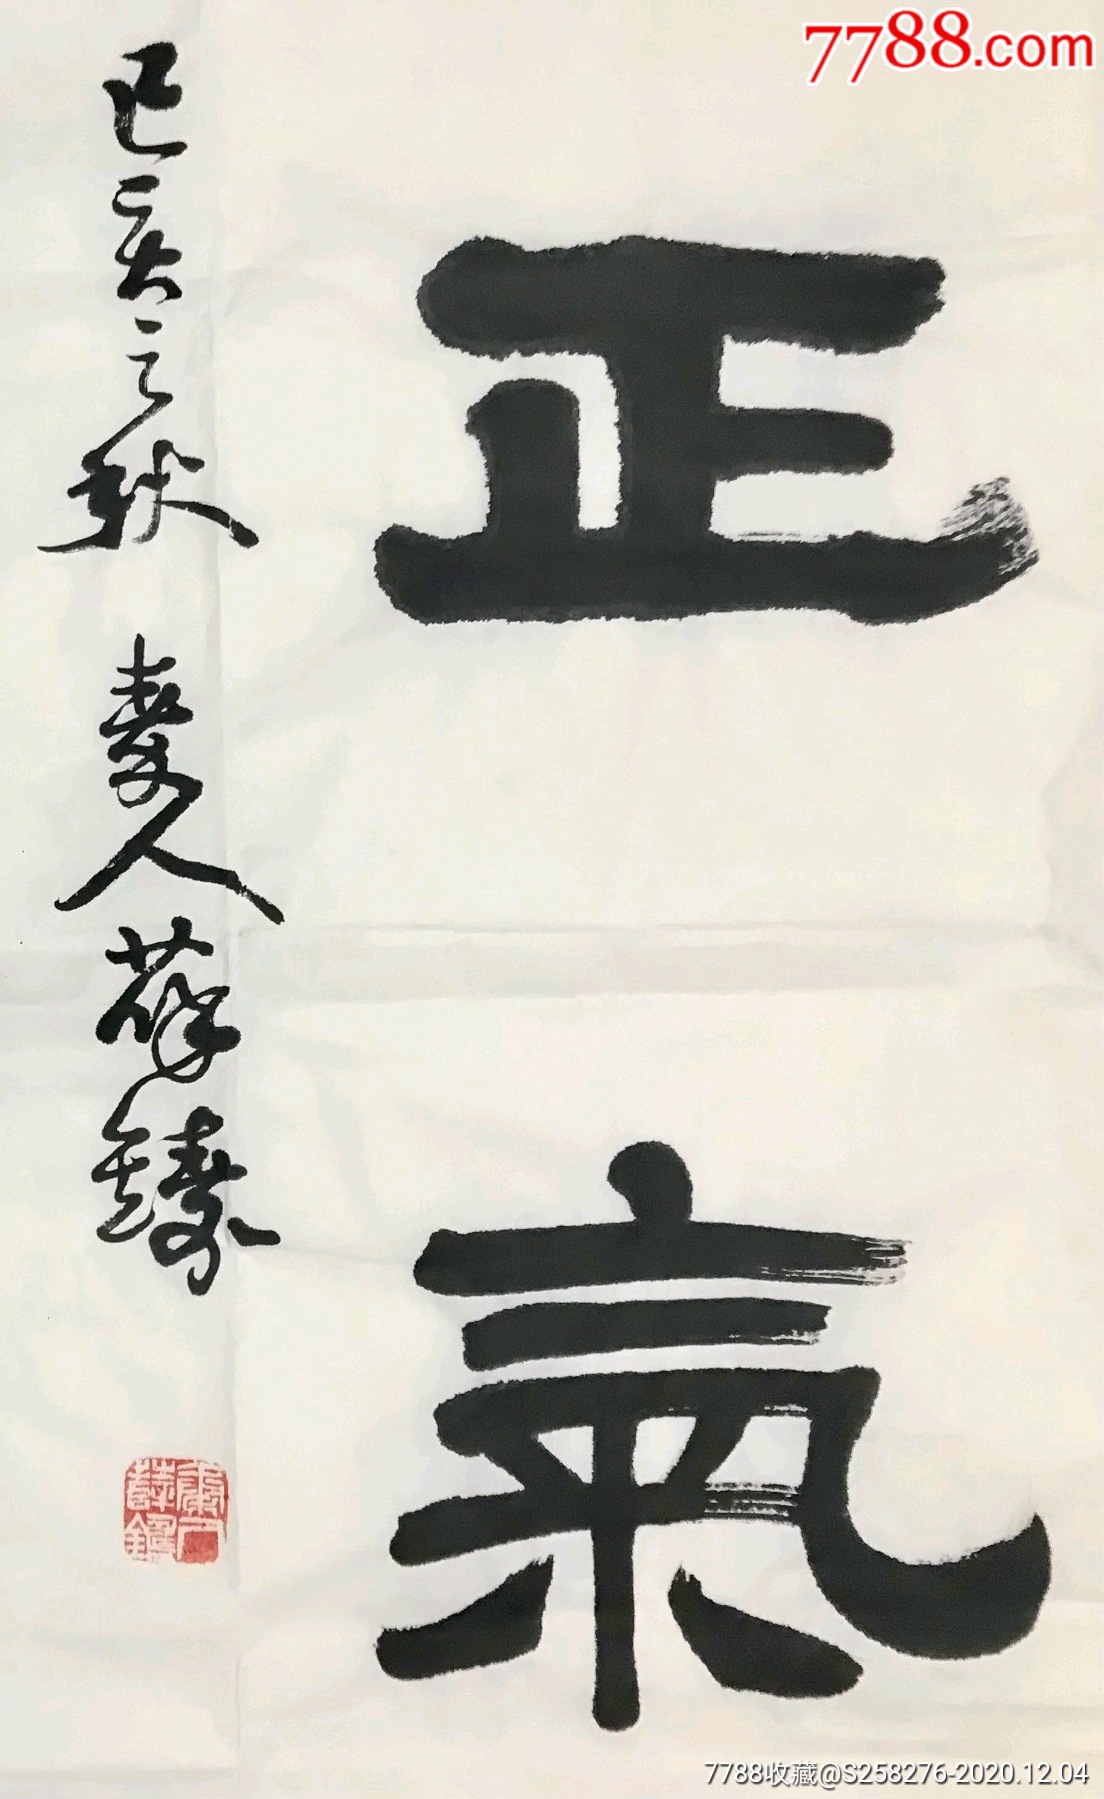 7788.com
正氣
己亥之秋 人薛鑄
7788收藏@S258276-2020.12.04